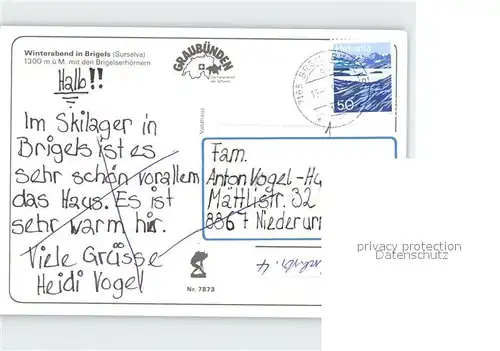 Winterabend in Brigels (Surselva)
1300 m ü.M. mit den Brigelserhörnern
GRAUBÜNDEN
Die Ferienecke
der Schweiz
Helvetia
50
7165
Halb!!
Im Skilager in
Brigels ist es
sehr schön vorallem
das Haus. Es ist
sehr warm hir.
Viele Grüsse
Heidi Vogel
Fam.
Anton Vogel-Hu
Mättlistr. 32
8867 Niederurn
Nr. 7873
privacy protection
Datenschutz